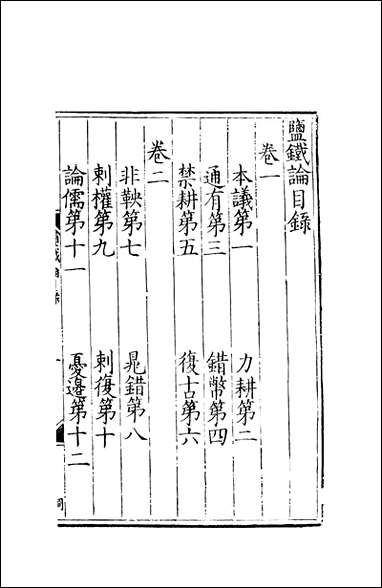 鹽鐵論目錄
卷一
本議第一　力耕第二
通有第三　錯幣第四
禁耕第五　復古第六
卷二
非鞅第七　晁錯第八
刺權第九　刺復第十
論儒第十一　憂邊第十二